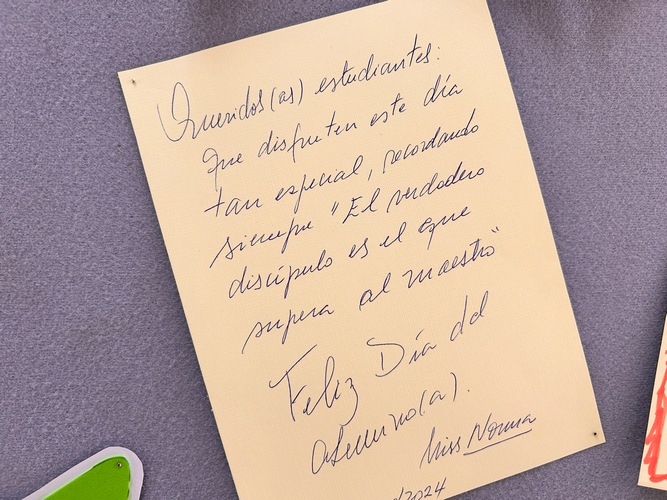 Queridos(as) estudiantes:
Que disfruten este día
tan especial, recordando
siempre "El verdadero
discípulo es el que
supera al maestro"
Feliz Día del
alumno(a).
Miss Norma
/2024